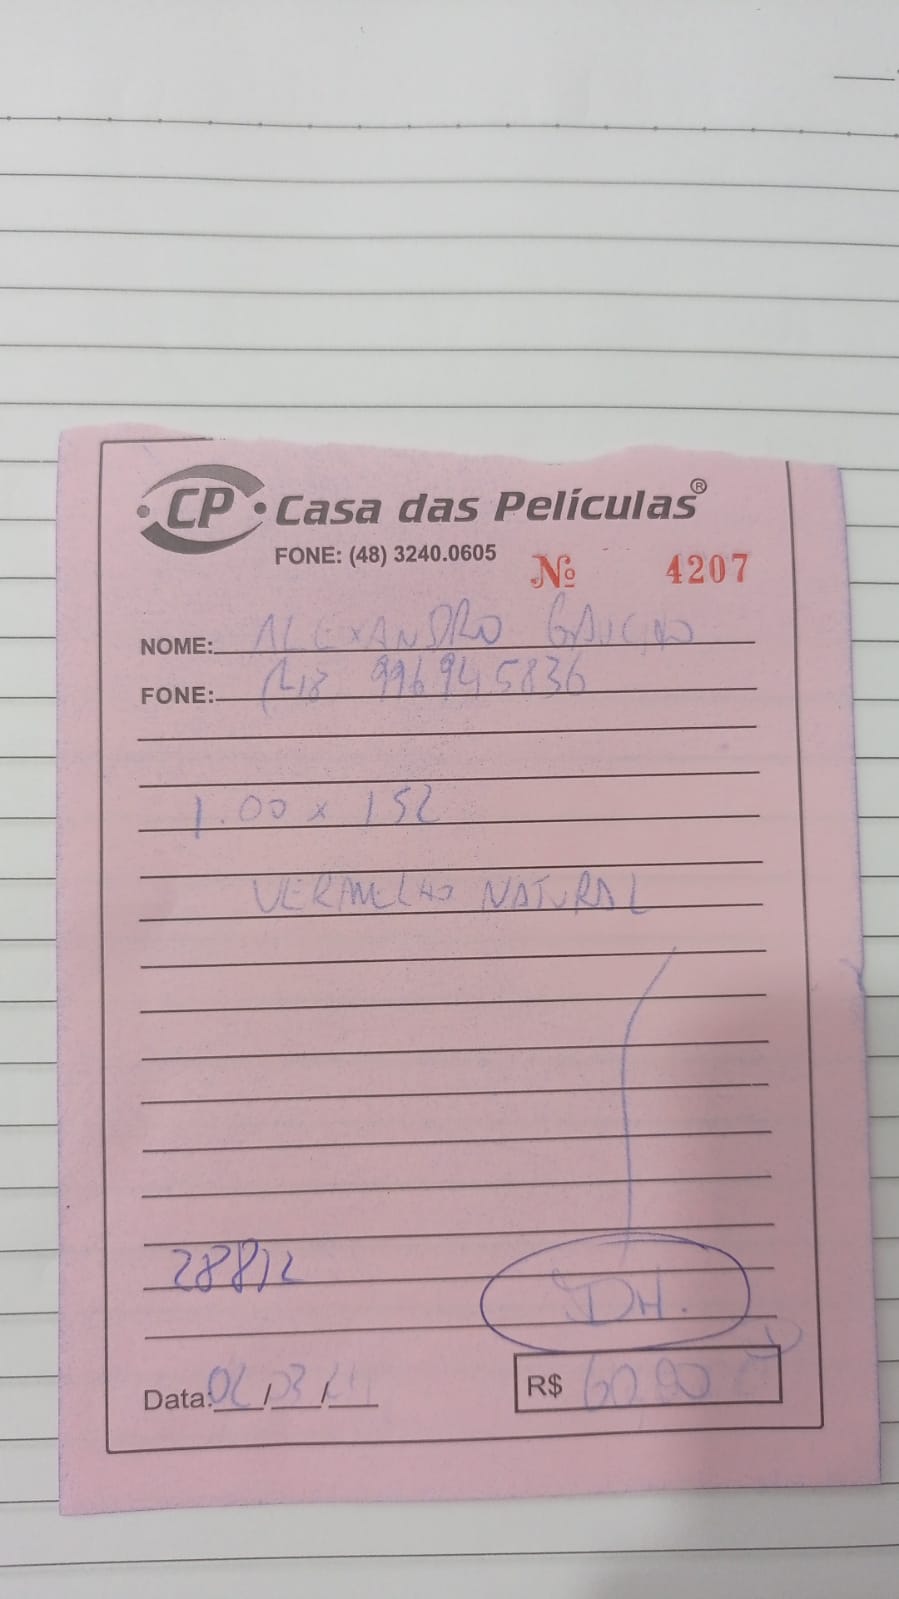 CP Casa das Películas®
FONE: (48) 3240.0605
Nº 4207
NOME: ALEXANDRO GAUCHO
FONE: 996945836
1.00 x 152
VERMELHO NATURAL
28812
DH.
Data: / 03 /
R$ 60.00